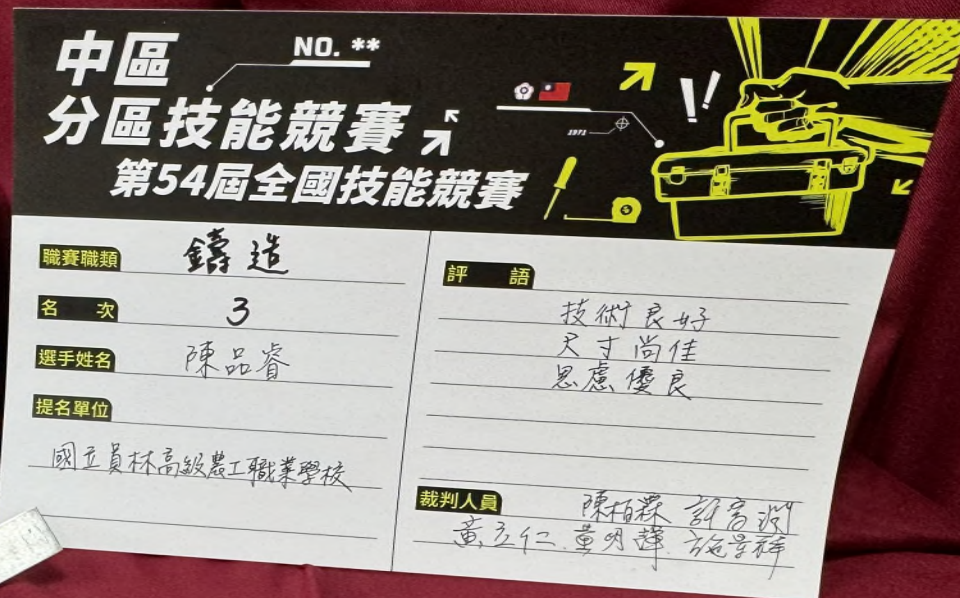 中區
NO. **
分區技能競賽
1971
第54屆全國技能競賽
職賽職類 鑄造
名次 3
選手姓名 陳品睿
提名單位
國立員林高級農工職業學校
評語
技術良好
尺寸尚佳
思慮優良
裁判人員 陳柏霖 許富淵
黃立仁 黃明輝 施景祥